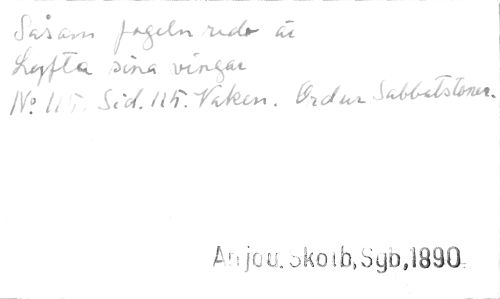 Såsom fogeln redo är
Lyfta sina vingar
No 115. Sid. 125. Vaken. Ord ur Sabbatstoner.
Anjou, Skolb, Syb, 1890.